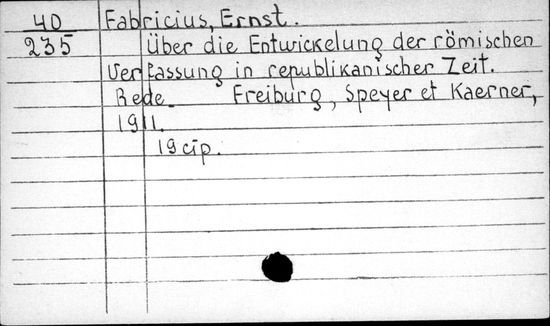 40 Fabricius, Ernst.
235 Über die Entwickelung der römischen
Verfassung in republikanischer Zeit.
Rede. Freiburg, Speyer et Kaerner,
1911.
19 cip.